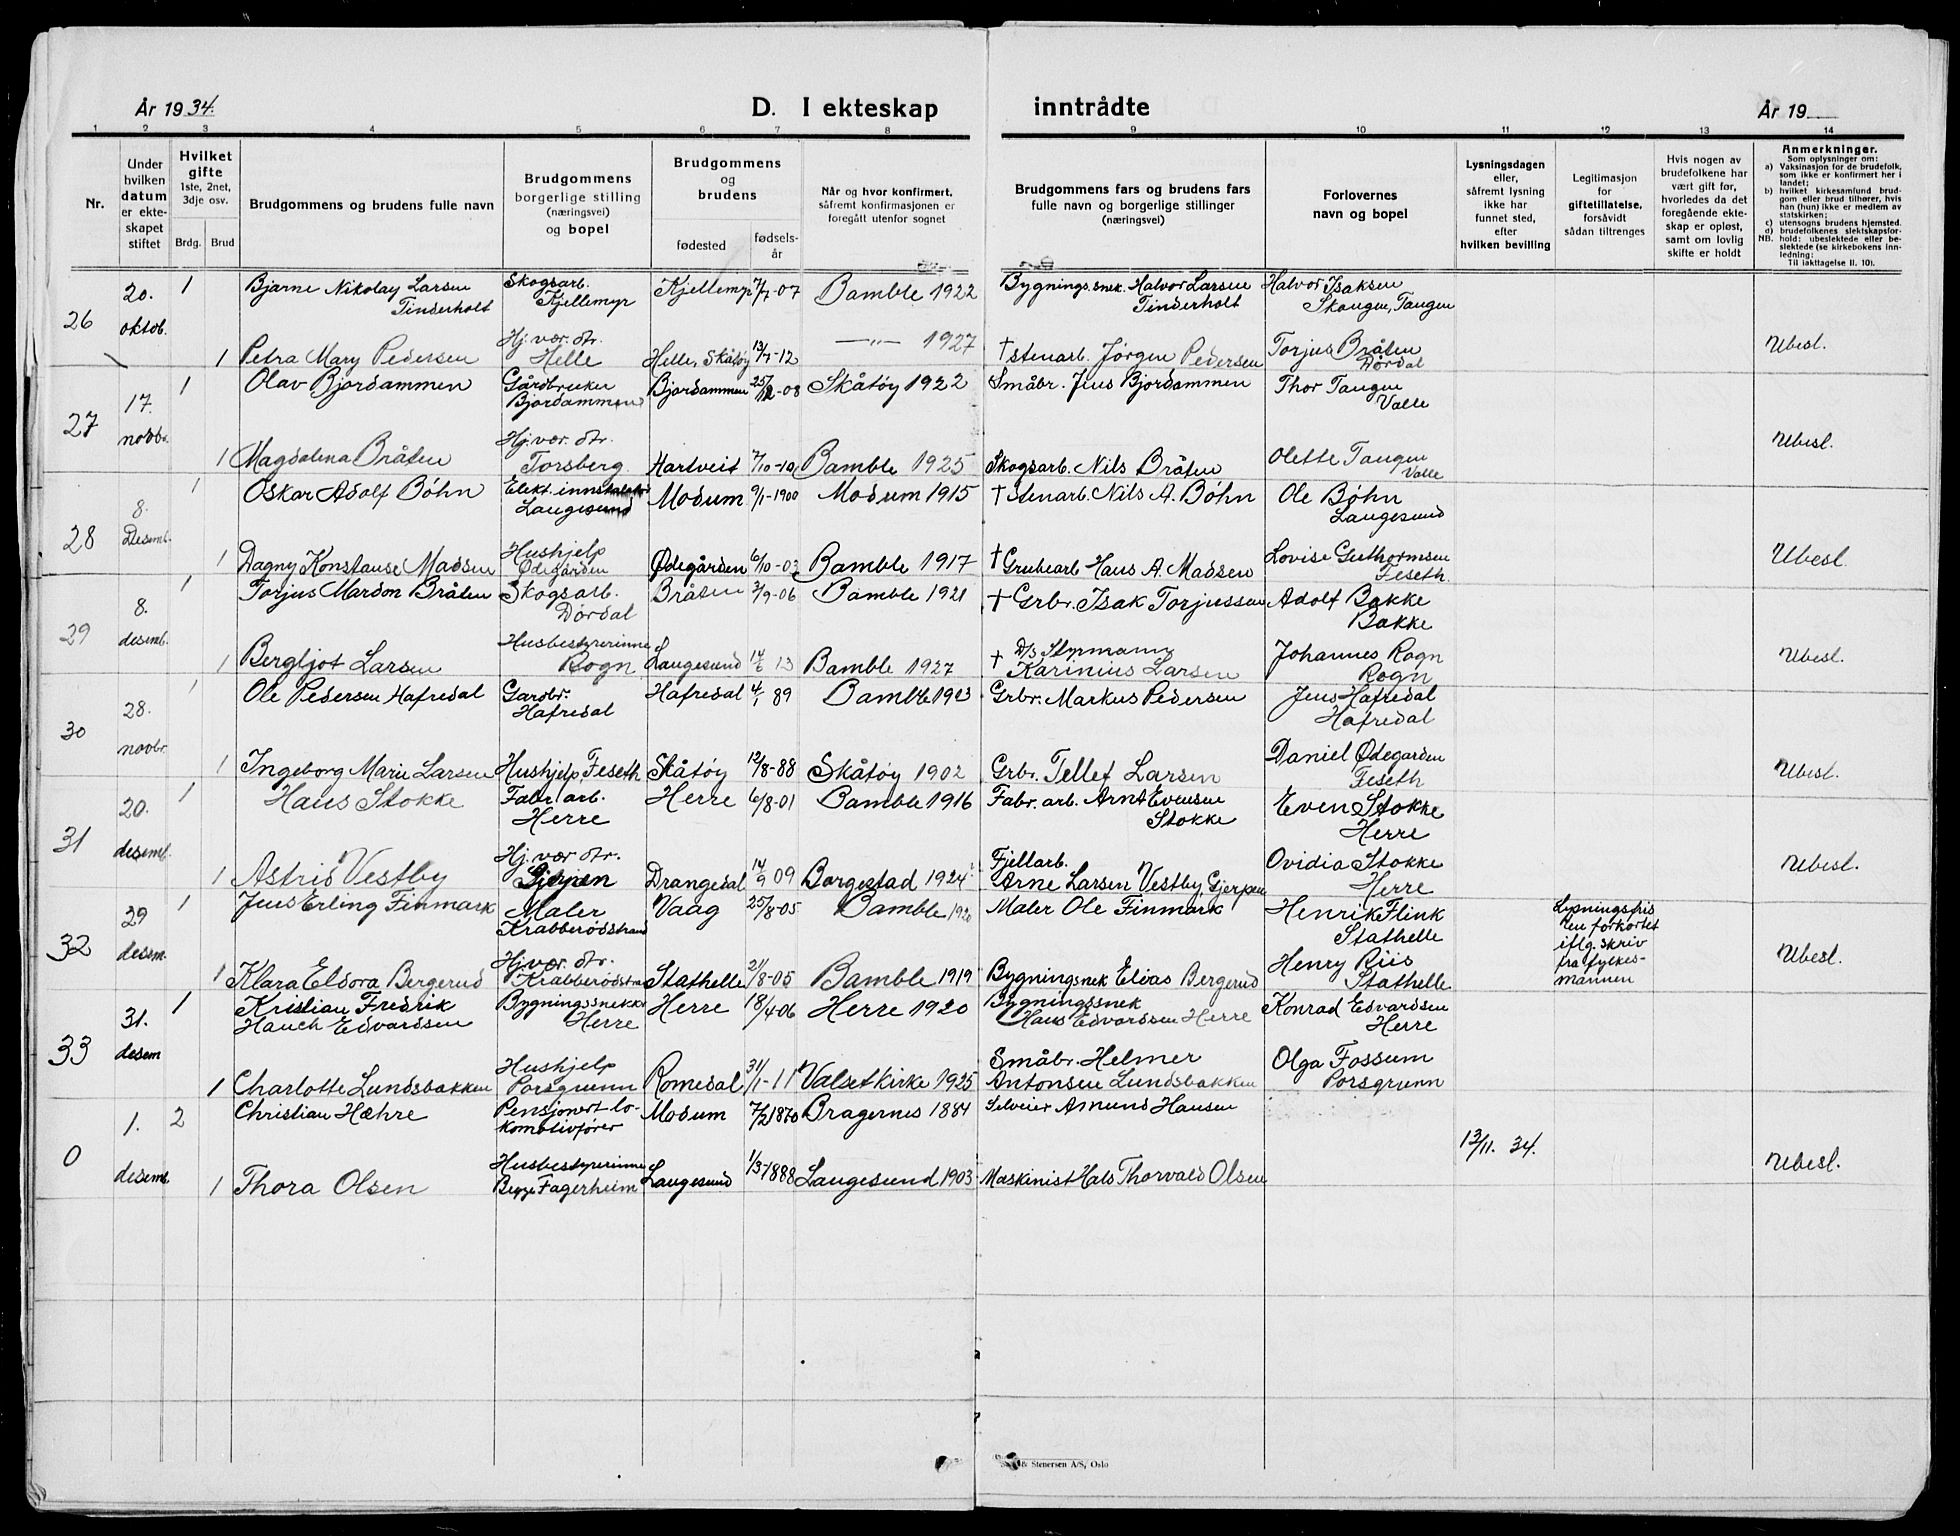 År 1934.
D. I ekteskap inntrådte
År 19
1 2 3 4 5 6 7 8 9 10 11 12 13 14
Nr.
Under hvilken datum er ekte-skapet stiftet
Hvilket gifte
1ste, 2net, 3dje osv.
Brdg. Brud
Brudgommens og brudens fulle navn
Brudgommens borgerlige stilling (næringsvei) og bopel
Brudgommens og brudens
fødested
fødsels-år
Når og hvor konfirmert, såfremt konfirmasjonen er foregått utenfor sognet
Brudgommens fars og brudens fars fulle navn og borgerlige stillinger (næringsvei)
Forlovernes navn og bopel
Lysningsdagen eller, såfremt lysning ikke har funnet sted, efter hvilken bevilling
Legitimasjon for giftetillatelse, forsåvidt sådan tiltrenges
Hvis nogen av brudefolkene har vært gift før, hvorledes da det foregående ekte-skap er opløst, samt om lovlig skifte er holdt
Anmerkninger.
Som oplysninger om:
a) Vaksinasjon for de brudefolk, som ikke er konfirmert her i landet;
b) hvilket kirkesamfund brud-gom eller brud tilhører, hvis han (hun) ikke er medlem av statskirken;
c) utensogns brudens hjemsted.
d) brudefolkenes slektskapsfor-hold: ubeslektede eller be-slektede (se kirkebokens inn-ledning:
NB. Til iakttagelse II. 10).
26 20. oktob. 1 Bjarne Nikolay Larsen Tinderholt Skogsarb. Kjellemyr Kjellemyr 7/7-07 Bamble 1922 Bygnings.snek. Halvor Larsen Tinderholt Halvor Isaksen Skougen, Tangen
1 Petra Mary Pedersen Hj. vær. dtr. Helle Helle, Skåtøy 13/7-12 —„— 1927 † stenarb. Jørgen Pedersen Torjus Bråten Dørdal Ubesl.
27 17. novbr. 1 Olav Bjordammen Gårdbruker Bjordammen Bjordammen 25/12-08 Skåtøy 1922 Småbr. Jens Bjordammen Thor Tangen Valle
1 Magdalena Bråten Hj. vær. dtr. Torsberg Hartveit 7/10-10 Bamble 1925 Skogsarb. Nils Bråten Olette Tangen Valle Ubesl.
28 8. Desemb. 1 Oskar Adolf Bøhn Elekt. innstalatør Langesund Modum 9/1-1900 Modum 1915 † stenarb. Nils A. Bøhn Ole Bøhn Langesund
1 Dagny Konstanse Madsen Hushjelp Ødegården Ødegården 6/10-03 Bamble 1917 † Grubearb Hans A. Madsen Lovise Guthormsen Feseth. Ubesl.
29 8. desemb. 1 Torjus Mardon Bråten Skogsarb. Dørdal Bråten 3/9-06 Bamble 1921 † Grbr. Isak Torjussen Adolf Bakke Bakke
1 Bergljot Larsen Husbestyrerinne Rogn Langesund 14/6 13 Bamble 1927 † D/S Styrmann Karinius Larsen Johannes Rogn Rogn Ubesl.
30 28. novbr. 1 Ole Pedersen Hafredal Gardbr. Hafredal Hafredal 4/1 89 Bamble 1903 Grbr. Markus Pedersen Jens Hafredal Hafredal
1 Ingeborg Marie Larsen Hushjelp Feseth Skåtøy 12/8-88 Skåtøy 1902 Grbr. Tellef Larsen Daniel Ødegården Feseth Ubesl.
31 20. desemb. 1 Hans Stokke Fabr. arb. Herre Herre 6/8-01 Bamble 1916 Fabr. arb. Arnt Evensen Stokke Even Stokke Herre
1 Astrid Vestby Hj. vær dtr. Gjerpen Drangedal 14/9 09 Borgestad 1924 Fjellarb. Arne Larsen Vestby, Gjerpen Ovidia Stokke Herre Ubesl.
32 29 desem. 1 Jens Erling Finmark Maler Krabberødstrand Vaag 25/8-05 Bamble 1920 Maler Ole Finmark Henrik Flink Stathelle Lysningsfris ten forkortet iflg. skriv fra fylkes-mannen
1 Klara Eldora Bergerud Hj. vær. dtr. Krabberødstrand Stathelle 21/8-05 Bamble 1919 Bygningsnek Elias Bergerud Henry Riis Stathelle Ubesl.
33 31. desem 1 Kristian Fredrik Hauch Edvardsen Bygningssnekker Herre Herre 18/4-06 Herre 1920 Bygningssnek Hans Edvardsen Herre Konrad Edvardsen Herre
1 Charlotte Lundsbakken Hushjelp Porsgrunn Romedal 31/1-11 Valset Kirke 1925 Småbr. Helmer Antonsen Lundsbakken Olga Fossum Porsgrunn
0 1. desemb. 2 Christian Hæhre Pensjonert lo-komotivfører Modum 7/2 1870 Bragernes 1884 Amund Hansen 13/11. 34.
1 Thora Olsen Husbestyrerinne Begge Fagerheim Langesund 1/3-1888 Langesund 1903 Maskinist Hals Thorvald Olsen Ubesl.
& Stenersen A/S, Oslo